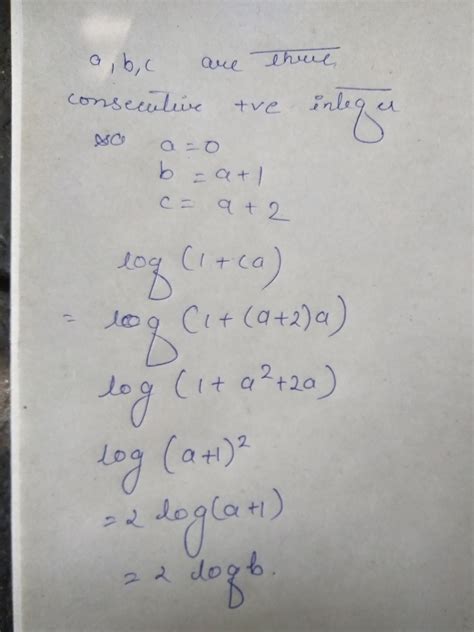 a, b, c are three
consecutive +ve integer
so a = 0
b = a + 1
c = a + 2
log (1 + ca)
= log (1 + (a+2)a)
log (1 + a² + 2a)
log (a+1)²
= 2 log(a+1)
= 2 logb.